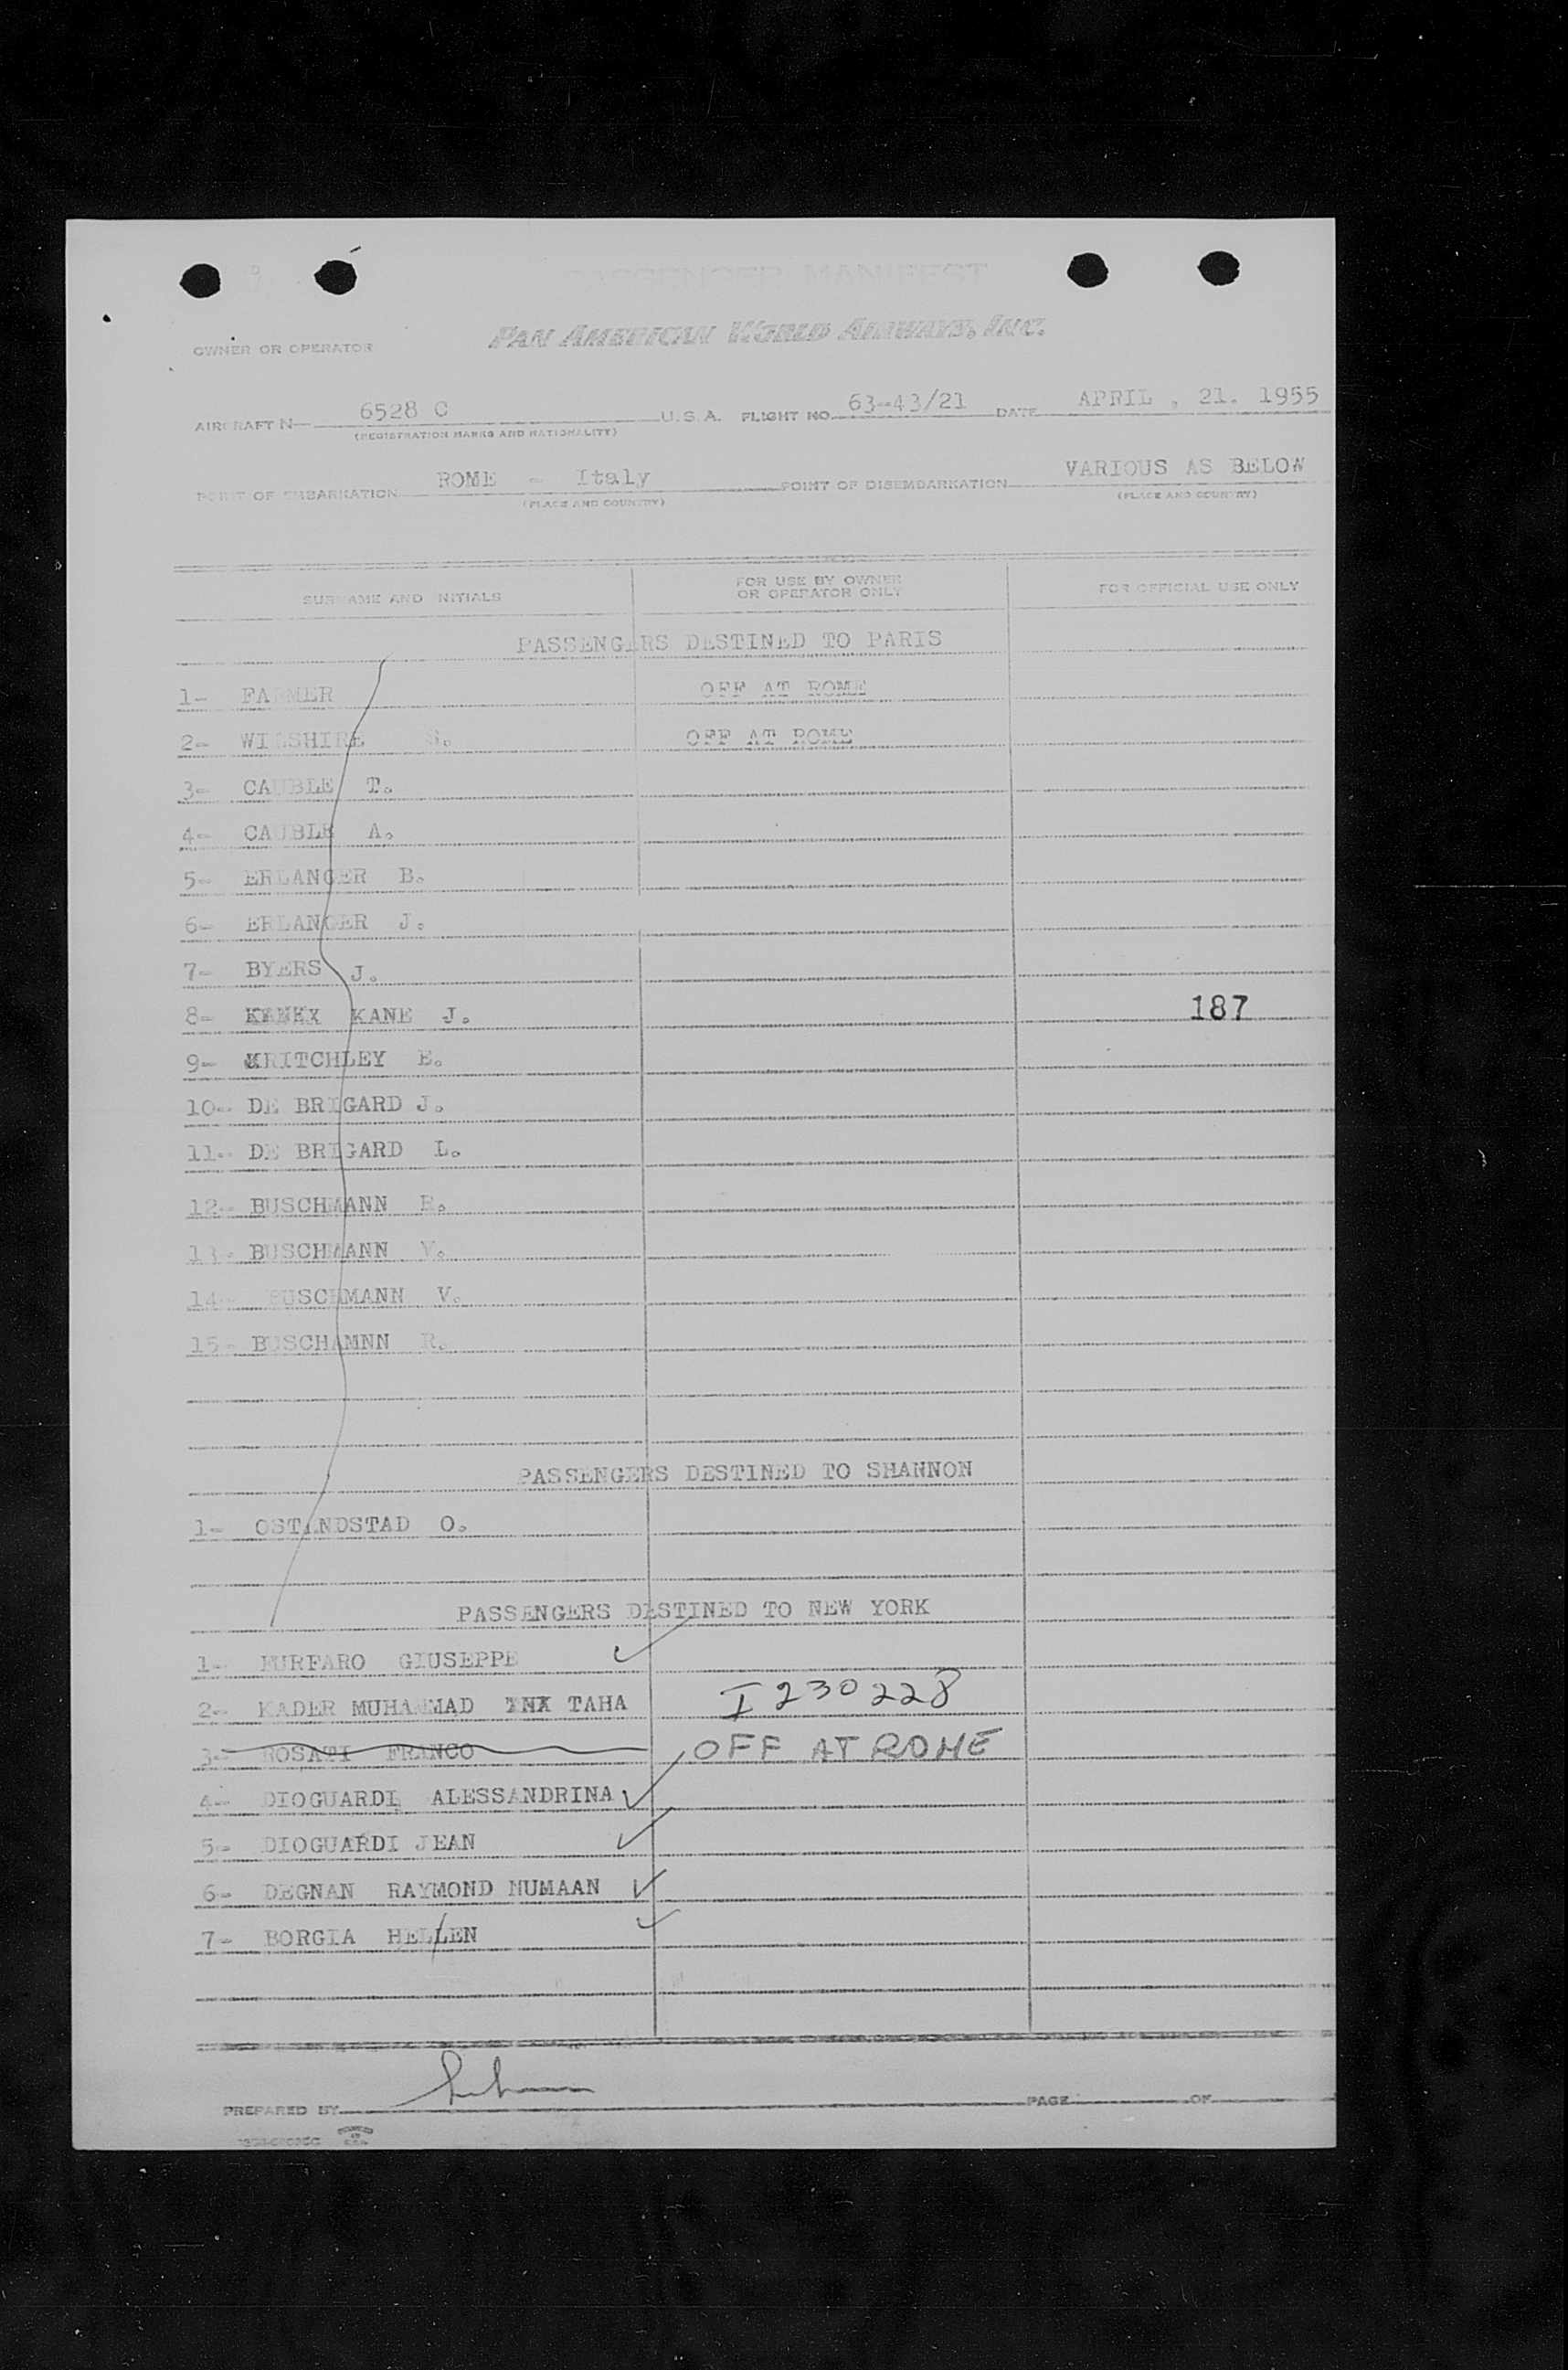 PASSENGER MANIFEST
OWNER OR OPERATOR PAN AMERICAN WORLD AIRWAYS, INC.
AIRCRAFT N 6528 C U.S.A. FLIGHT NO. 63-43/21 DATE APRIL , 21. 1955
(REGISTRATION MARKS AND NATIONALITY)
POINT OF EMBARKATION ROME - Italy POINT OF DISEMBARKATION VARIOUS AS BELOW
(PLACE AND COUNTRY) (PLACE AND COUNTRY)
SURNAME AND INITIALS FOR USE BY OWNER OR OPERATOR ONLY FOR OFFICIAL USE ONLY
PASSENGERS DESTINED TO PARIS
1- FARMER OFF AT ROME
2- WILSHIRE S. OFF AT ROME
3- CAUBLE T.
4- CAUBLE A.
5- ERLANGER B.
6- ERLANGER J.
7- BYERS J.
8- KANEX KANE J. 187
9- KRITCHLEY E.
10- DE BRIGARD J.
11- DE BRIGARD L.
12- BUSCHMANN
13- BUSCHMANN
14- BUSCHMANN V.
15- BUSCHAMNN R.
PASSENGERS DESTINED TO SHANNON
1- OSTANDSTAD O.
PASSENGERS DESTINED TO NEW YORK
1- FURFARO GIUSEPPE
2- KADER MUHAMMAD TAHA I 230228
3- ROSATI FRANCO OFF AT ROME
4- DIOGUARDI ALESSANDRINA
5- DIOGUARDI JEAN
6- DEGNAN RAYMOND NUMAAN
7- BORGIA HELLEN
PREPARED BY PAGE OF